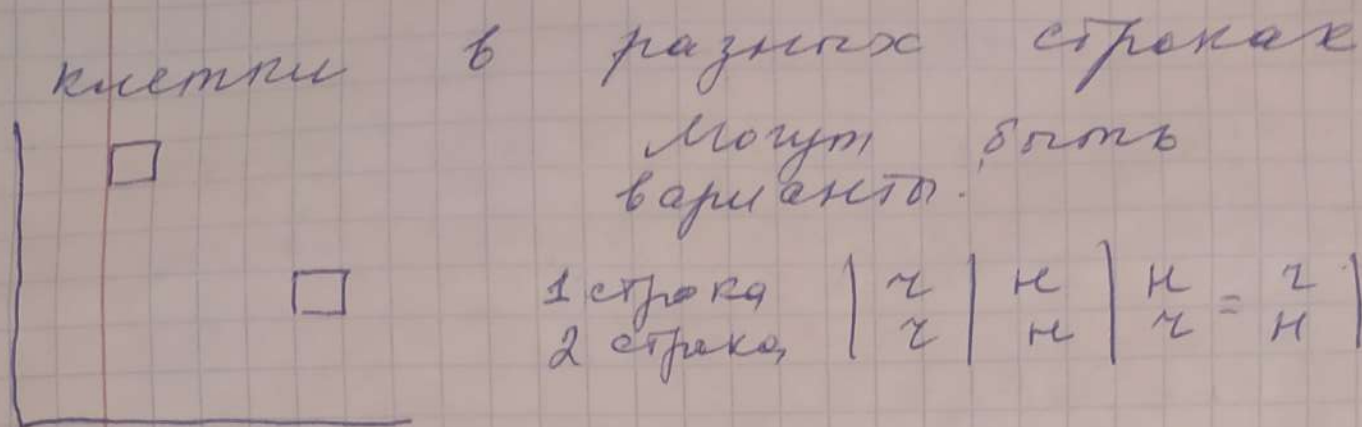 клетки в разных строках
Могут быть
варианты.
1 строка | ч | н | н = ч |
2 строка | ч | н | ч н |